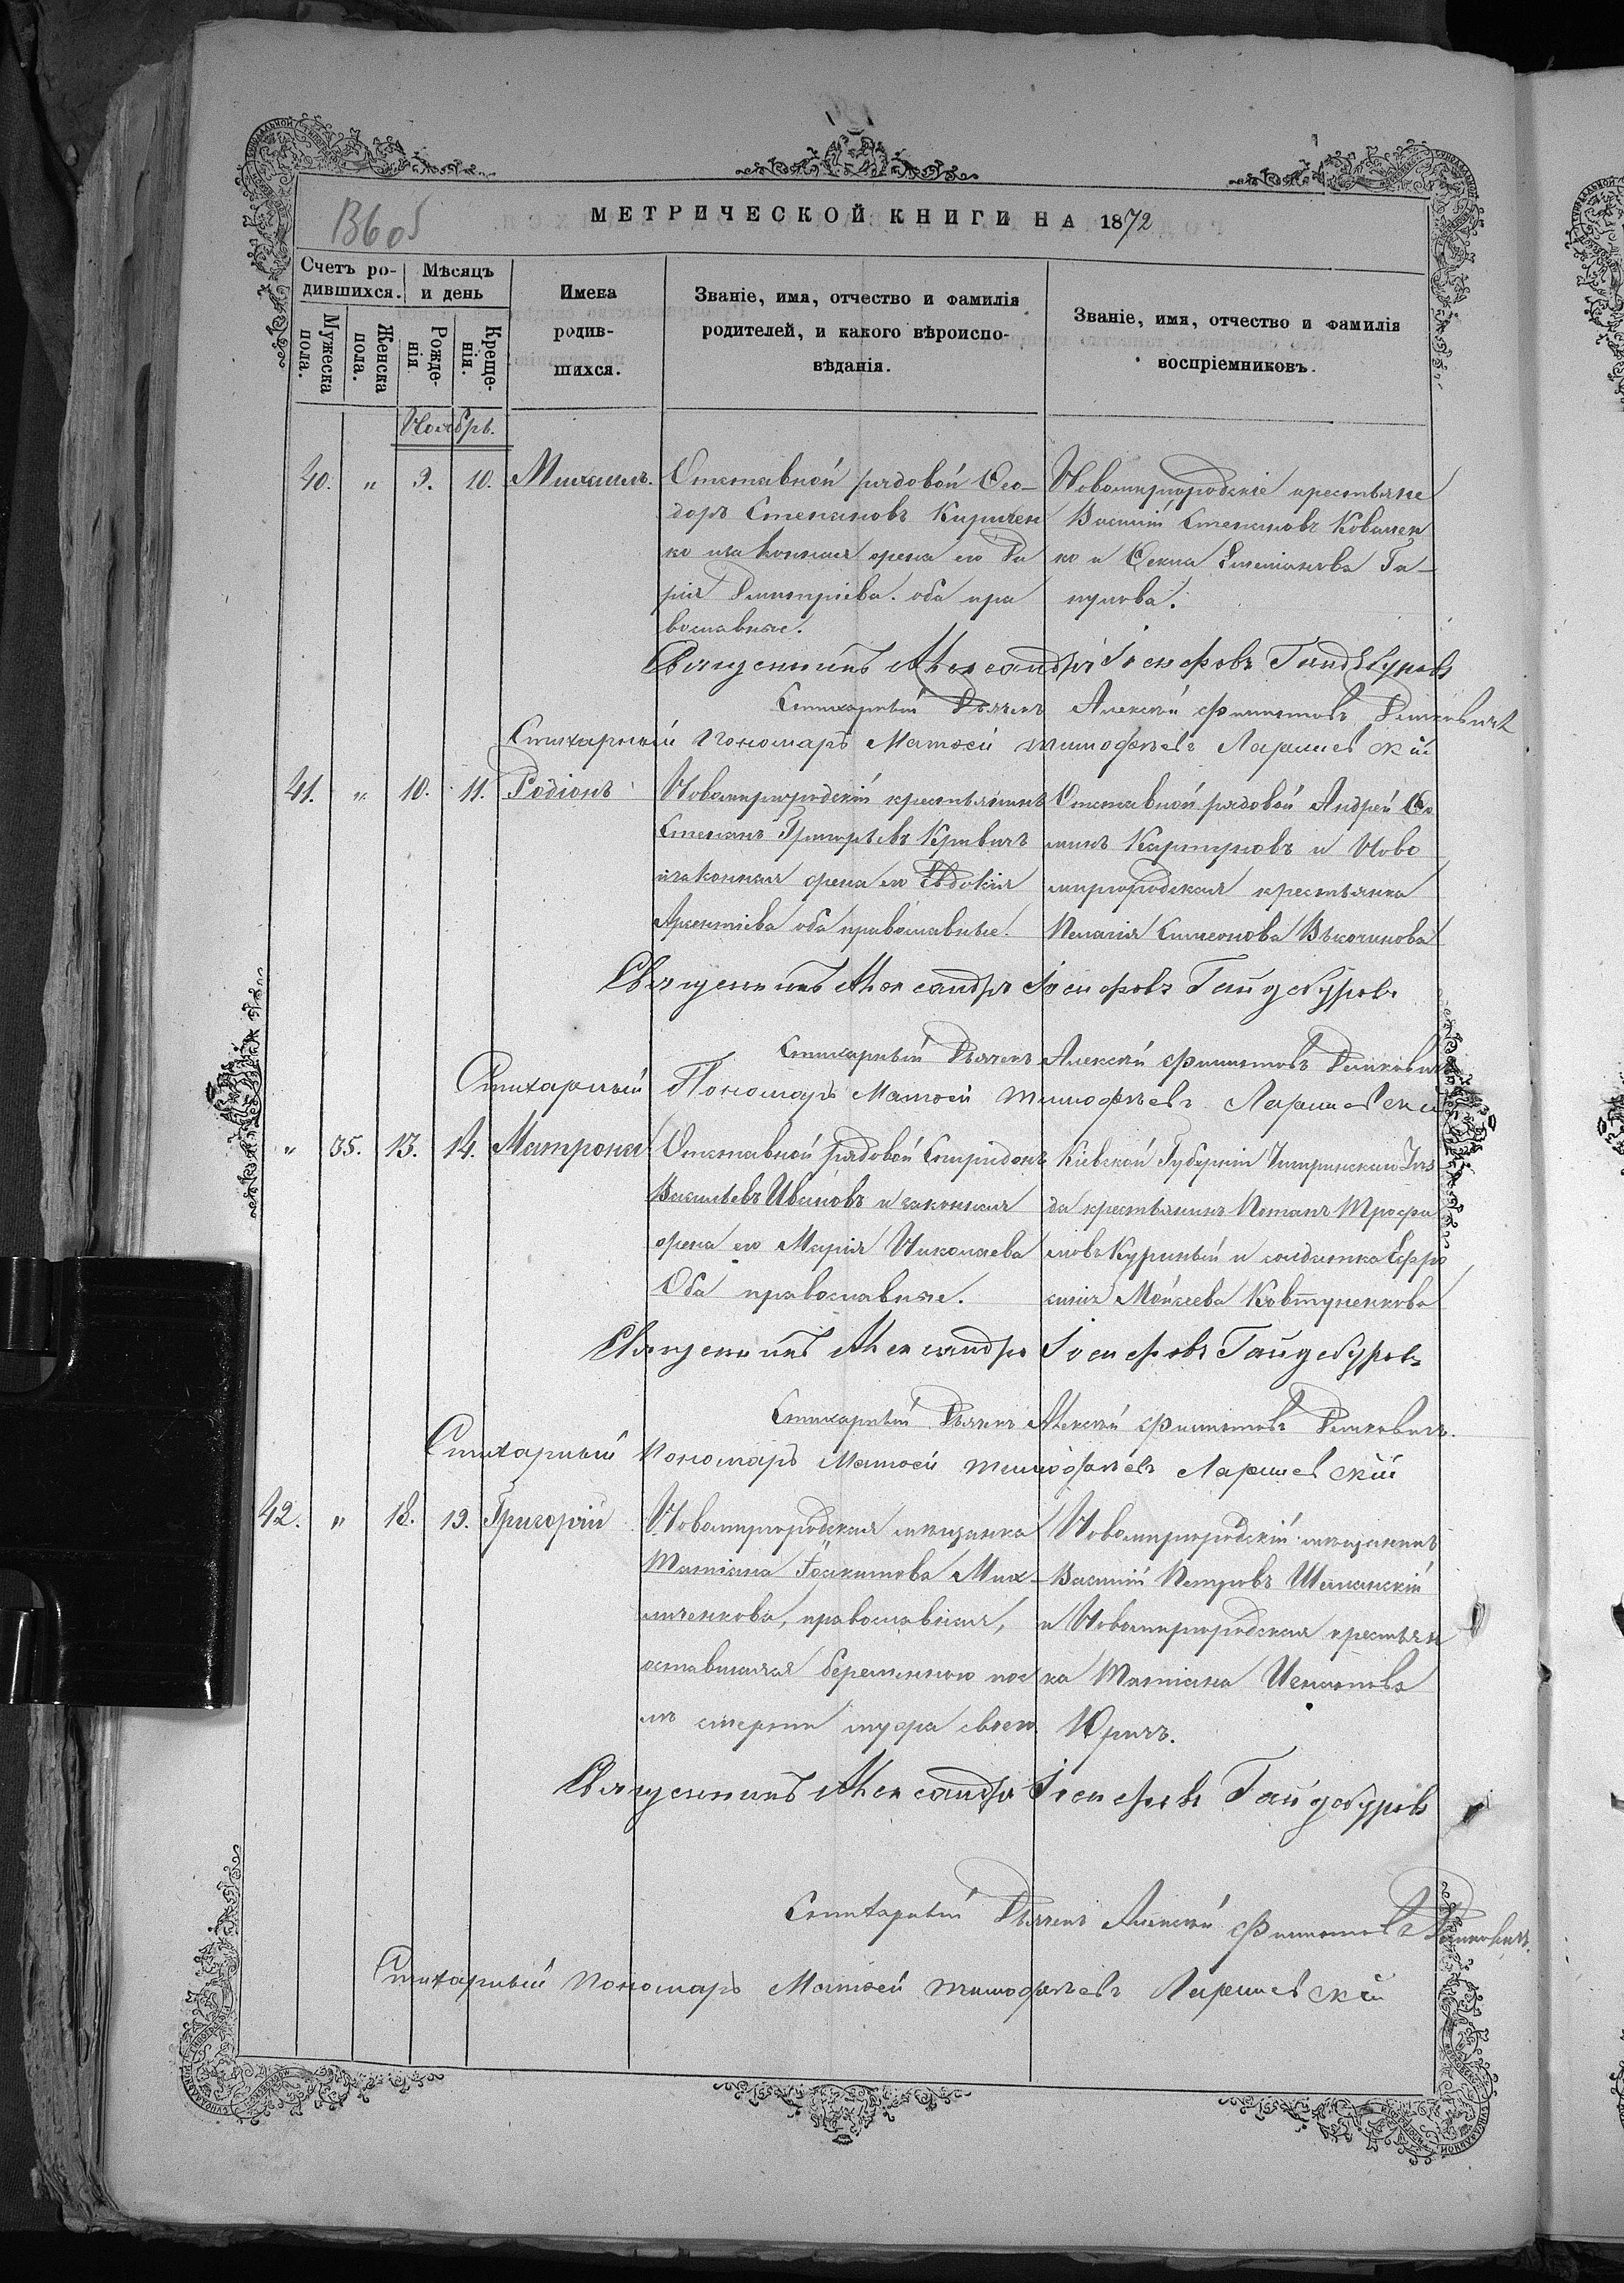 МЕТРИЧЕСКОЙ КНИГИ НА 1872
Счетъ ро-
дившихся.
Мѣсяцъ
и день
Имена
родив-
шихся.
Званіе, имя, отчество и фамилія
родителей, и какого вѣроиспо-
вѣданія.
Званіе, имя, отчество и фамилія
воспріемниковъ.
Мужеска
пола.
Женска
пола.
Рожде-
нія.
Креще-
нія.
Ноябрь.
40. " 9. 10. Михаилъ. Отставной рядовой Ѳео-
доръ Степановъ Киричен
ко и законная жена его Да
рія Димитріева. оба пра
вославные.
Новомиргородскіе крестьяне
Василій Степановъ Ковален
ко и Ѳекла Емеліанова Га-
пунова.
Священникъ Александръ Іосифовъ Гайдебуровъ
Стихарный Дьячекъ Алексѣй Филиповъ
Стихарный Пономарь Матѳей Тимофѣевъ
41. " 10. 11. Родіонъ Новомиргородскій крестьянинъ
Степанъ Григорьевъ Кривичъ
и законная жена его Евдокія
оба православные.
Отставной рядовой Андрей Ѳо
минъ Картуновъ и Ново
миргородская крестьянка
Пелагія Симеонова
Священникъ Александръ Іосифовъ Гайдебуровъ
Стихарный Дьячекъ Алексѣй Филиповъ
Стихарный Пономарь Матѳей Тимофѣевъ
" 35. 13. 14. Матрона Отставной рядовой Спиридонъ
Васильевъ Ивановъ и законная
жена его Марія Николаева
Оба православные.
Кіевской Губерніи Чигринскаго Уѣз
да крестьянинъ Потапъ Трофи
мовъ Куриный и солдатка Ефро
синія Моѵсеева Ковтуненкова
Священникъ Александръ Іосифовъ Гайдебуровъ
Стихарный Дьячекъ Алексѣй Филиповъ
Стихарный Пономарь Матѳей Тимофѣевъ
42. " 18. 19. Григорій Новомиргородская мѣщанка
Татіана Іоакимова Мих-
личенкова, православная,
оставшаяся беременною пос
лѣ смерти мужа своего
Новомиргородскій мѣщанинъ
Василій Петровъ Шеманскій
и Новомиргородская крестьян
ка Татіана Игнатова
Юричъ.
Священникъ Александръ Іосифовъ Гайдебуровъ
Стихарный Дьячекъ Алексѣй Филиповъ
Стихарный Пономарь Матѳей Тимофѣевъ